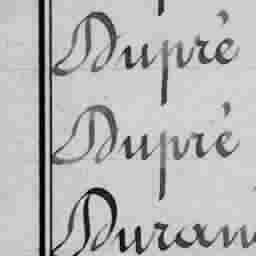 Dupré
Dupré
Duran